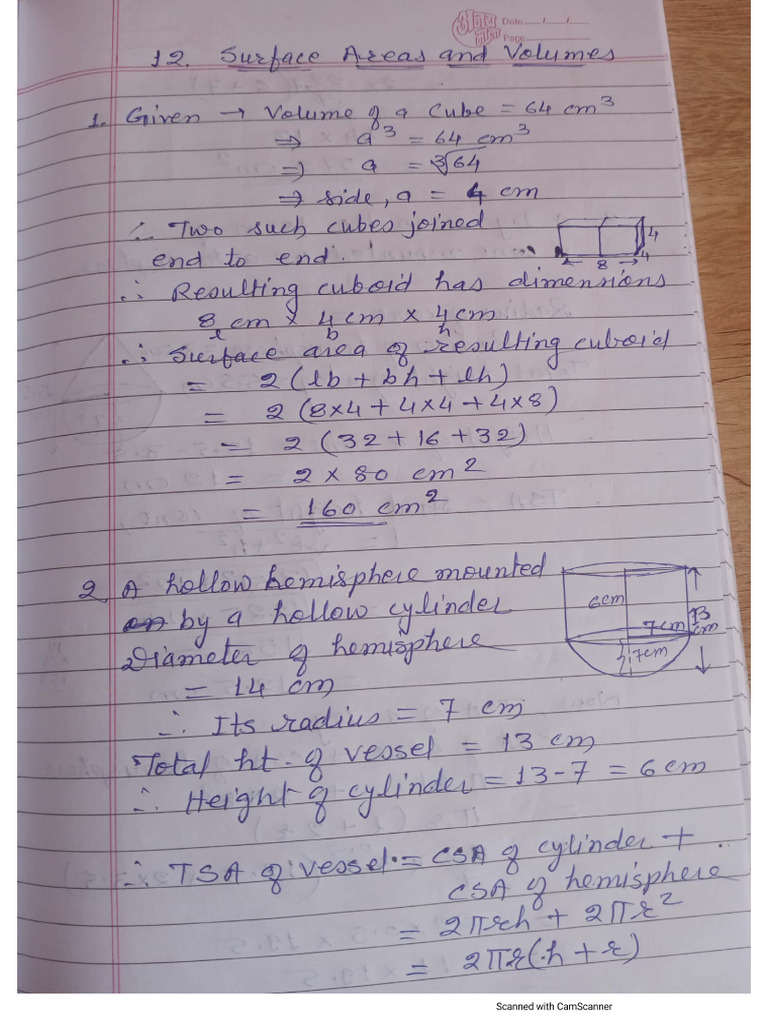 Date / /
Page
12. Surface Areas and Volumes
1. Given → Volume of a Cube = 64 cm³
⇒ a³ = 64 cm³
⇒ a = ∛64
⇒ side, a = 4 cm
∴ Two such cubes joined
end to end.
4
8
4
∴ Resulting cuboid has dimensions
8 cm × 4 cm × 4 cm
l b h
∴ Surface area of resulting cuboid
= 2 (lb + bh + lh)
= 2 (8×4 + 4×4 + 4×8)
= 2 (32 + 16 + 32)
= 2 × 80 cm²
= 160 cm²
2. A hollow hemisphere mounted
by a hollow cylinder
6cm
7cm
13 cm
7cm
Diameter of hemisphere
= 14 cm
∴ Its radius = 7 cm
Total ht. of vessel = 13 cm
∴ Height of cylinder = 13-7 = 6 cm
∴ TSA of vessel = CSA of cylinder +
CSA of hemisphere
= 2πrh + 2πr²
= 2πr(h + r)
Scanned with CamScanner